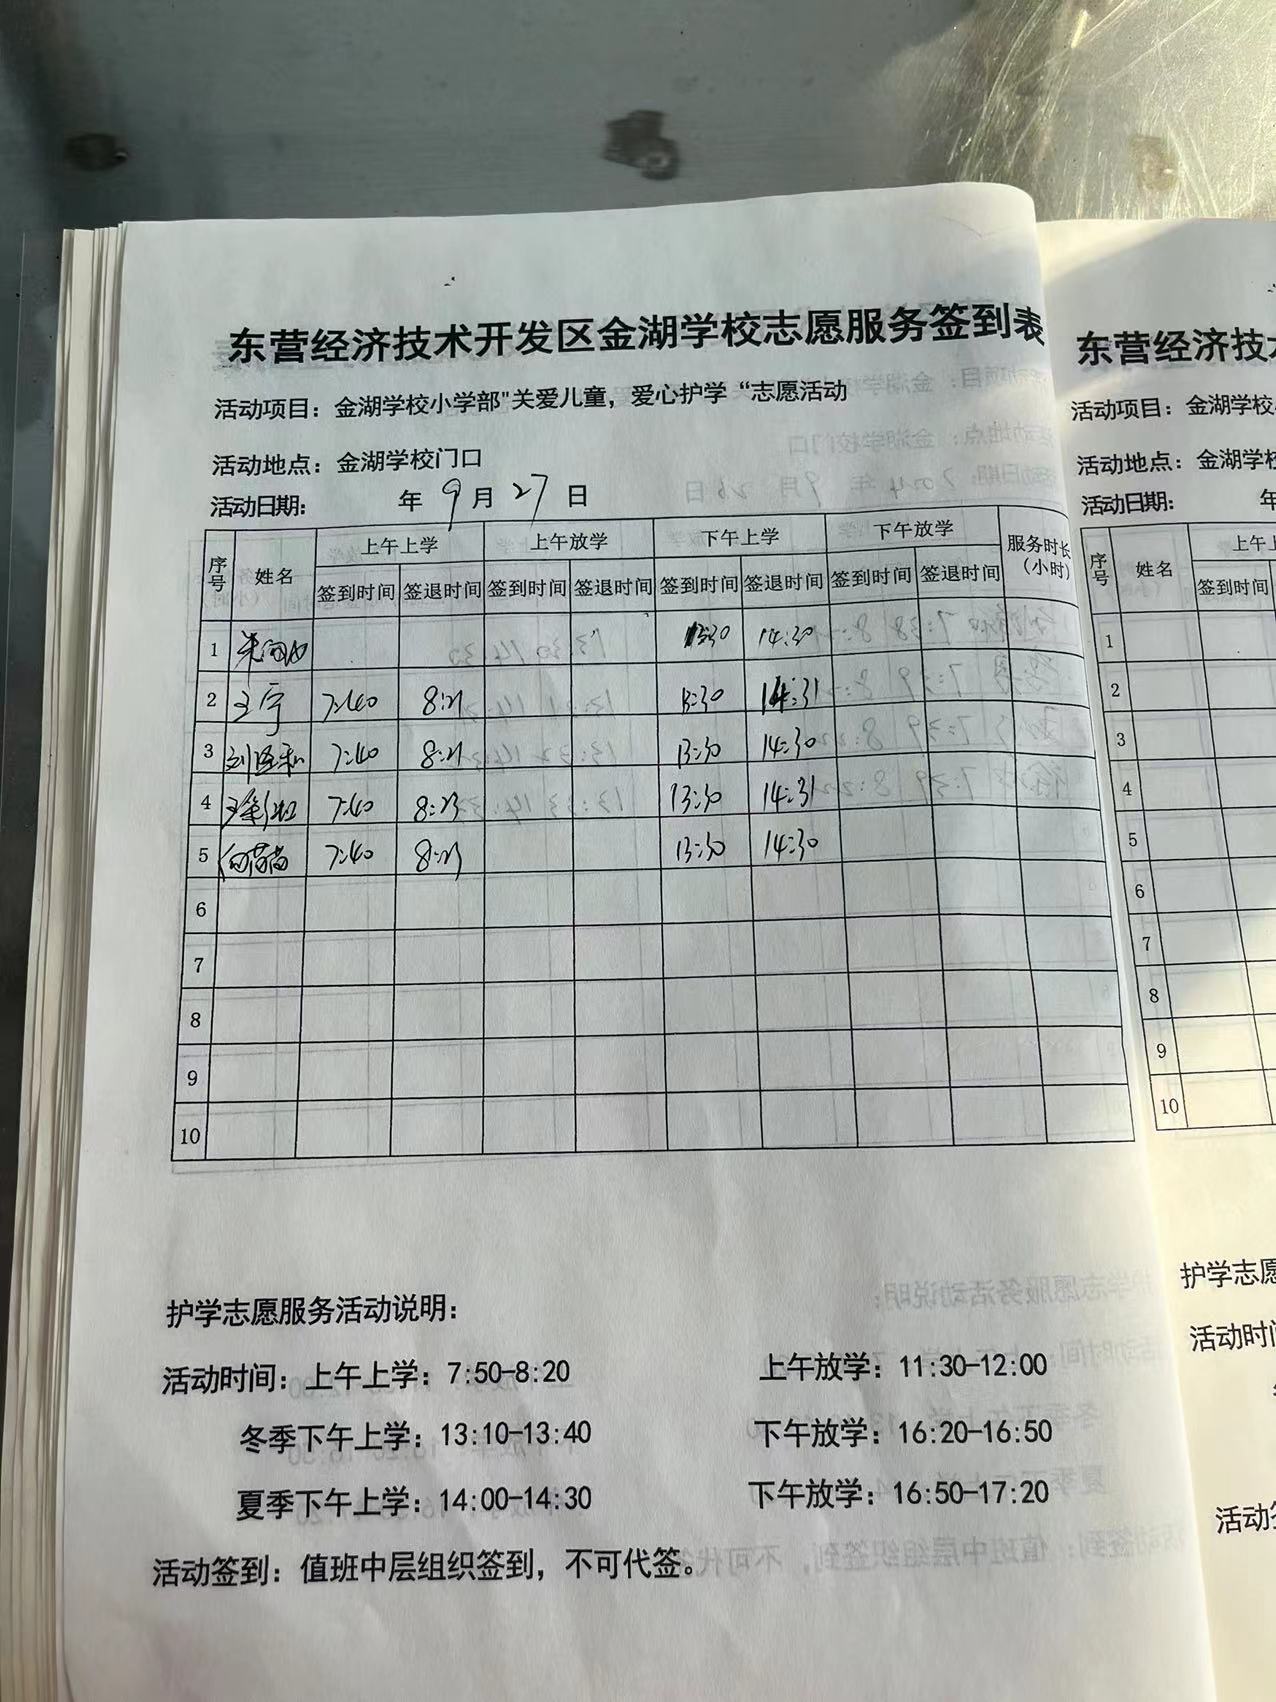 东营经济技术开发区金湖学校志愿服务签到表
活动项目：金湖学校小学部"关爱儿童，爱心护学“志愿活动
活动地点：金湖学校门口
活动日期： 年 9月 27 日
序号 姓名 上午上学 上午放学 下午上学 下午放学 服务时长（小时）
签到时间 签退时间 签到时间 签退时间 签到时间 签退时间 签到时间 签退时间
1 13:30 14:30
2 王宇 7:40 8:21 13:30 14:31
3 7:40 8:21 13:30 14:30
4 7:40 8:23 13:30 14:31
5 7:40 8:23 13:30 14:30
6
7
8
9
10
护学志愿服务活动说明：
活动时间：上午上学：7:50-8:20 上午放学：11:30-12:00
冬季下午上学：13:10-13:40 下午放学：16:20-16:50
夏季下午上学：14:00-14:30 下午放学：16:50-17:20
活动签到：值班中层组织签到，不可代签。
东营经济技
活动项目：金湖学校
活动地点：金湖学校
活动日期： 年
序号 姓名 上午上
签到时间
1
2
3
4
5
6
7
8
9
10
护学志愿
活动时间
活动签